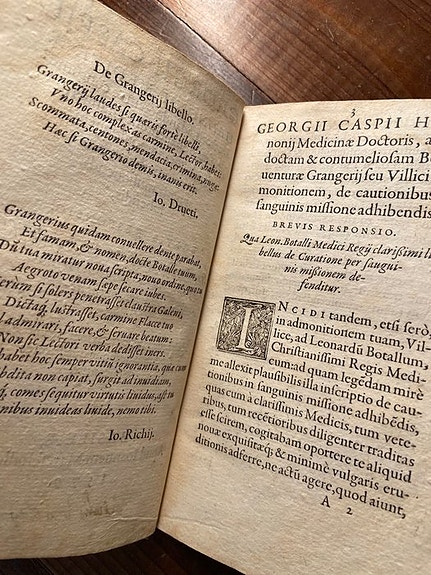 De Grangerij libello.
Grangerij laudes si quæris fortè libelli,
Vno hoc complexas carmine, Lector, habes:
Scommata, centones, mendacia, crimina, nugæ:
Hæc si Grangerio demis, inanis erit.
Io. Drueti.
Grangerius quidam conuellere dente parabat,
Et famam, & nomen, docte Botalle tuum,
Dũ tua miratur noua scripta, nouo ordine, quo tu
Aegroto venam sæpe secare iubes.
si solers penetrasset claustra Galeni,
Dictaq, lustrasset, carmine Flacce tuo
admirari, facere, & seruare beatum:
Non sic Lectori verba dedisset ineri.
habet hoc semper vitij ignorantia, quæ cum
abdita non capiat, surgit ad inuidiam,
comes sequitur virtutis liuidus, ast tu
inuideas liuide, nemo tibi.
Io. Richij.
3
GEORGII CASPII H
nonij Medicinæ Doctoris, a
doctam & contumeliosam Bo
uenturæ Grangerij seu Villici
monitionem, de cautionibus
sanguinis missione adhibendis
BREVIS RESPONSIO.
Qua Leon. Botalli Medici Regij clarissimi li
bellus de Curatione per sangui
nis missionem de
fenditur.
INCIDI tandem, etsi ferò,
in admonitionem tuam, Vil
lice, ad Leonardũ Botallum,
Christianissimi Regis Medi
cum: ad quam legẽdam mirè
me allexit plausibilis illa inscriptio de cau
tionibus in sanguinis missione adhibẽdis,
quas cum à clarissimis Medicis, tum vete
ribus, tum recẽtioribus diligenter traditas
esse scirem, cogitabam oportere te aliquid
nouæ exquisitæq; & minimè vulgaris eru
ditionis adferre, ne actũ agere, quod aiunt,
A 2